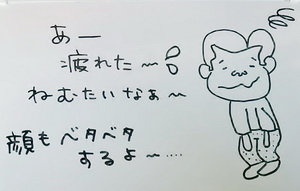 あー
疲れた〜
ねむたいなぁ〜
顔もベタベタ
するよ〜‥‥